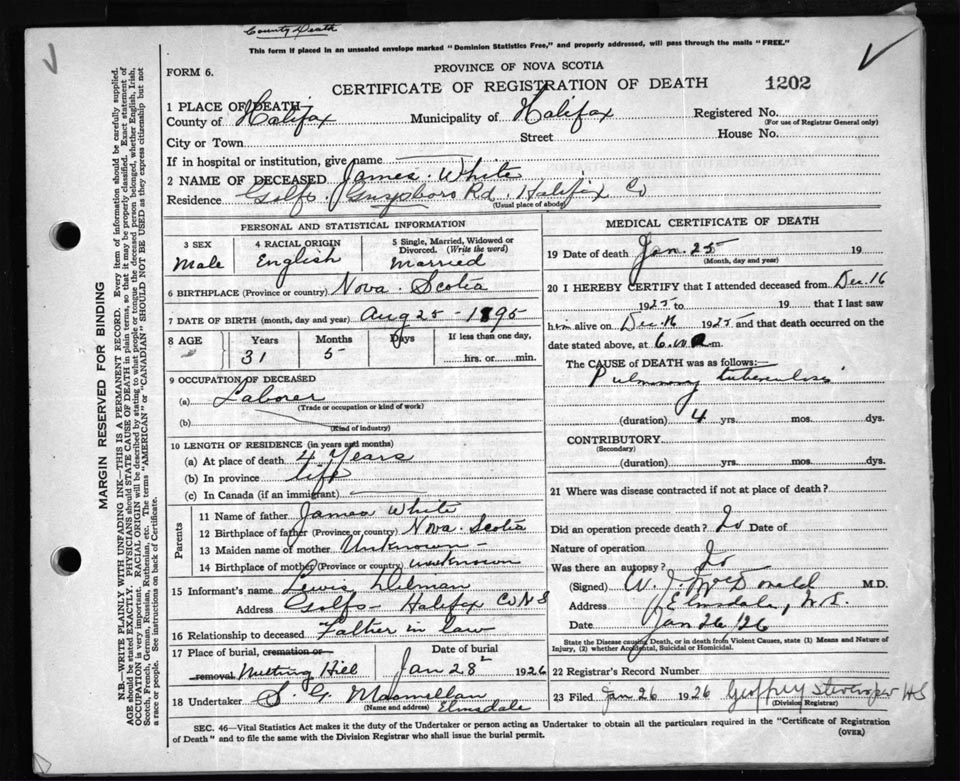 County Death
This form if placed in an unsealed envelope marked "Dominion Statistics Free," and properly addressed, will pass through the mails "FREE."
FORM 6.
PROVINCE OF NOVA SCOTIA
CERTIFICATE OF REGISTRATION OF DEATH
1202
1 PLACE OF DEATH—
County of Halifax Municipality of Halifax Registered No.
(For use of Registrar General only)
City or Town Street House No.
If in hospital or institution, give name
2 NAME OF DECEASED James White
Residence Goffs. Guysboro Rd. Halifax Co
(Usual place of abode)
PERSONAL AND STATISTICAL INFORMATION
3 SEX Male
4 RACIAL ORIGIN English
5 Single, Married, Widowed or Divorced. (Write the word) Married
6 BIRTHPLACE (Province or country) Nova. Scotia
7 DATE OF BIRTH (month, day and year) Aug 25 - 1895
8 AGE Years 31 Months 5 Days If less than one day, hrs. or min.
9 OCCUPATION OF DECEASED
(a) Laborer
(Trade or occupation or kind of work)
(b)
(Kind of industry)
10 LENGTH OF RESIDENCE (in years and months)
(a) At place of death 4 Years
(b) In province life
(c) In Canada (if an immigrant)
Parents
11 Name of father James White
12 Birthplace of father (Province or country) Nova. Scotia
13 Maiden name of mother Unknown -
14 Birthplace of mother (Province or country) unknown
15 Informant's name Lewis Dilman
Address Goffs - Halifax Co N S
16 Relationship to deceased Father in law
17 Place of burial, cremation or removal Nutting Hill
Date of burial Jan 28 1926
18 Undertaker S G Macmellan
(Name and address) Elmsdale
MEDICAL CERTIFICATE OF DEATH
19 Date of death Jan. 25 19
(Month, day and year)
20 I HEREBY CERTIFY that I attended deceased from Dec. 16
1925 to 19 that I last saw
him alive on Dec. 16 1925 and that death occurred on
date stated above, at 6. a m.
The CAUSE OF DEATH was as follows:—
Pulmonary tuberculosis
(duration) 4 yrs. mos. dys.
CONTRIBUTORY
(Secondary)
(duration) yrs. mos. dys.
21 Where was disease contracted if not at place of death?
Did an operation precede death? No Date of
Nature of operation
Was there an autopsy? No
(Signed) W. J. McDonald M.D.
Address Elmsdale, N.S.
Date Jan 26 '26
State the Disease causing Death, or in death from Violent Causes, state (1) Means and Nature of
Injury, (2) whether Accidental, Suicidal or Homicidal.
22 Registrar's Record Number
23 Filed Jan 26 1926 Geoffrey
(Division Registrar)
SEC. 46—Vital Statistics Act makes it the duty of the Undertaker or person acting as Undertaker to obtain all the particulars required in the "Certificate of Registration
of Death" and to file the same with the Division Registrar who shall issue the burial permit.
(OVER)
MARGIN RESERVED FOR BINDING
N.B.—WRITE PLAINLY WITH UNFADING INK—THIS IS A PERMANENT RECORD. Every item of information should be carefully supplied.
AGE should be stated EXACTLY. PHYSICIANS should STATE CAUSE OF DEATH in plain terms, so that it may be properly classified. Exact statement of
OCCUPATION is very important. RACIAL ORIGIN will be described by stating to what people or tongue the deceased person belonged, whether English, Irish,
Scotch, French, German, Russian, Ruthenian, etc. The terms "AMERICAN" or "CANADIAN" SHOULD NOT BE USED as they express citizenship but not
a race or people. See instructions on back of Certificate.